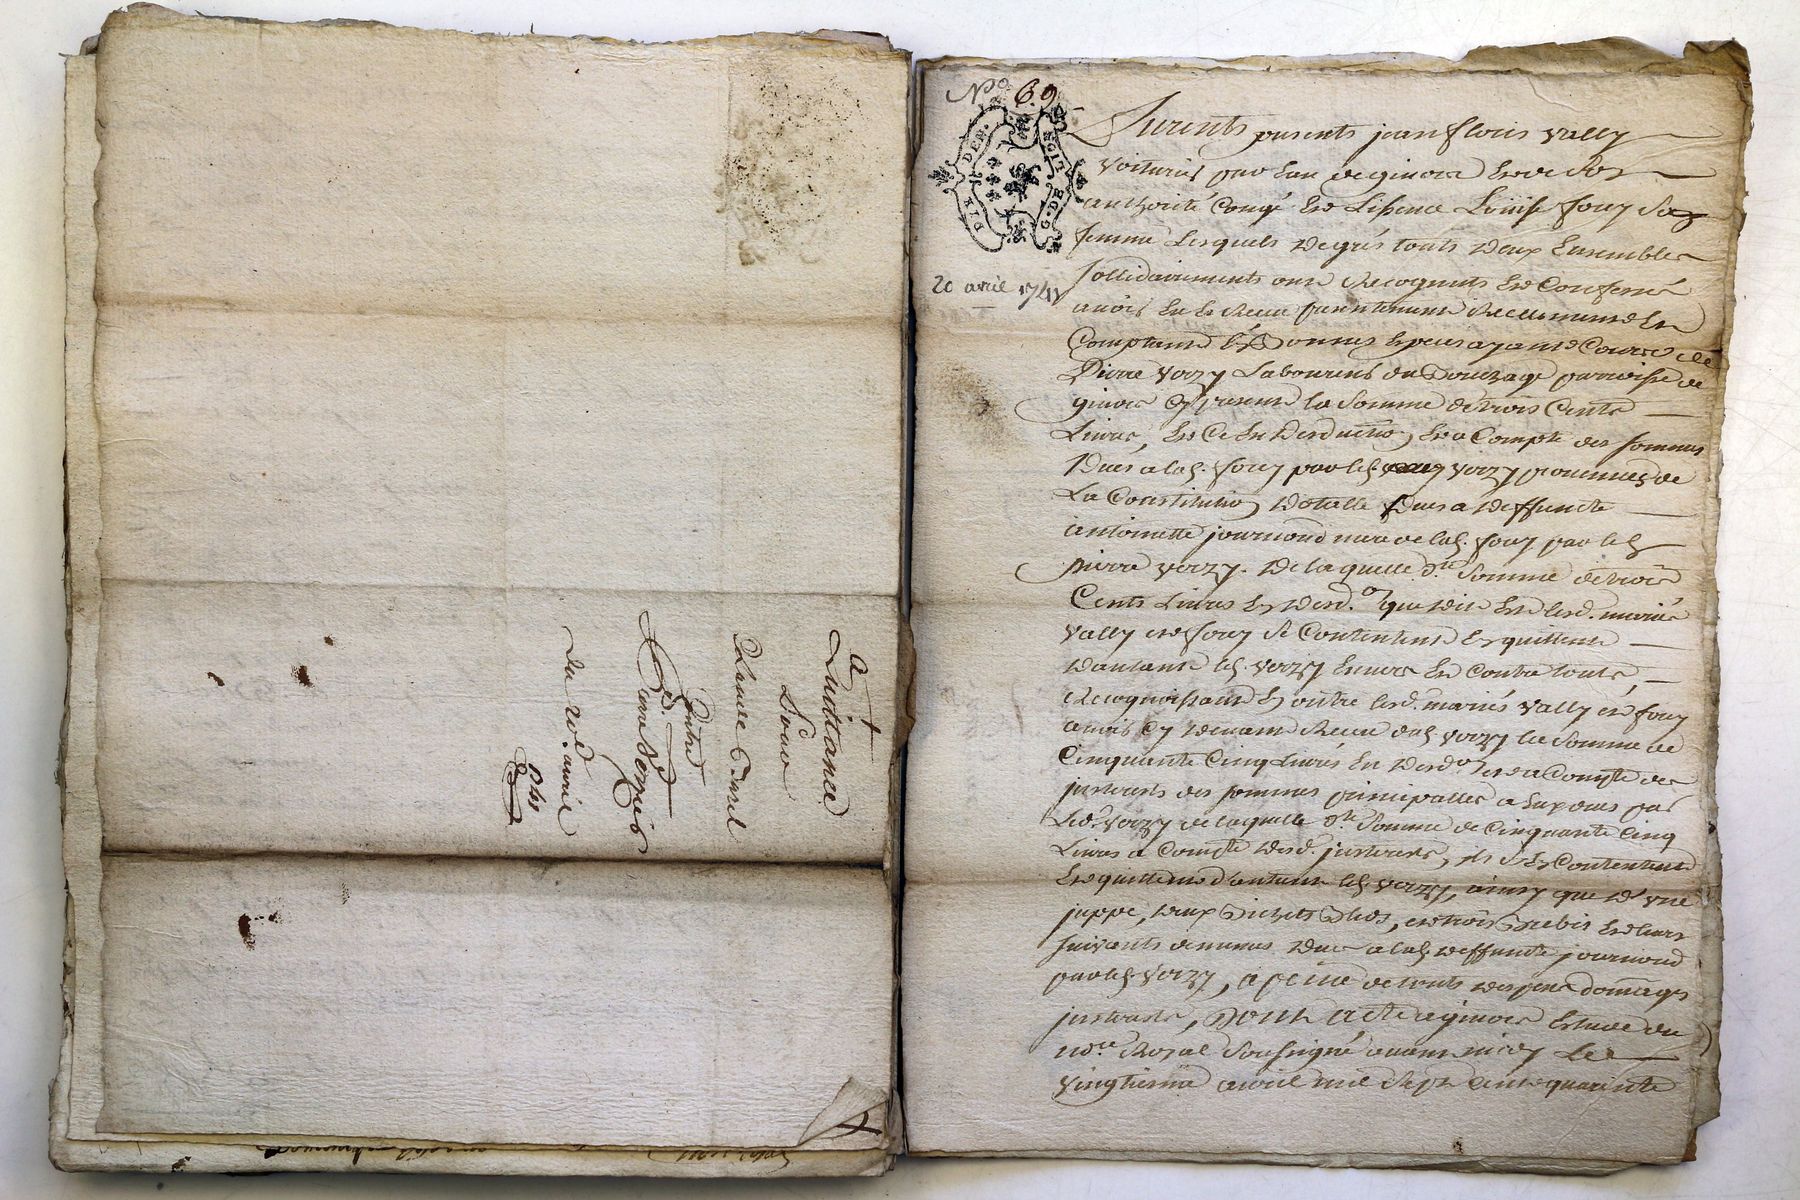 A
Quitance
Pour
Claude Burel
Contre
du 20e avril
1741
No 69
DIR. DE R.
G. DE LION
20 avril 1741
Furents presents jean floris Vally
voiturier par Eau de givors Et de son
authorité Congé Et Lissence Louise fouy Sa
femme Lesquels de grés touts deux Ensembles
sollidairements ont Recognuts Et Confessé
avoir Eu et Receu presentement Reellement Et
Comptant Et bonnes Especes ayant Cours de
Pierre Verzy Laboureur du parroisse de
givors Cy present la Somme de trois Cents
Livres, Et Ce En Desduction Et a Compte des sommes
Dues a lad. fouy par led. verzy provenues de
La Constitution Dotalle Dues a Deffuncte
antoinette journoud mere de lad. fouy par led.
pierre verzy. De laquelle d.te Somme de trois
Cents Livres En Desd.on que dit Est lesd. mariés
Vally et fouy Se Contentent Et quittent
d'autant led. verzy Envers Et Contre touts
Recognoissant En outre lesd. mariés Vally et fouy
avoir Cy devant Receu dud. verzy la Somme de
Cinquante Cinq Livres En Desd.on Et a Compte des
jnterests des sommes principalles a Eux dues par
Led. verzy de laquelle d.te Somme de Cinquante Cinq
Livres a Compte Desd. jnterests, ils se Contentent
Et quittent d'autant led. verzy, ainsy que d'une
juppe, deux et trois brebis Et leurs
suivants dues a lad. deffunte journoud
par led. verzy, a peine de touts despens domages
jnterests, Dont acte a givors Estude du
no.re Royal Soussigné avant midy Le
vingtieme avril mil Sept Cent quarente